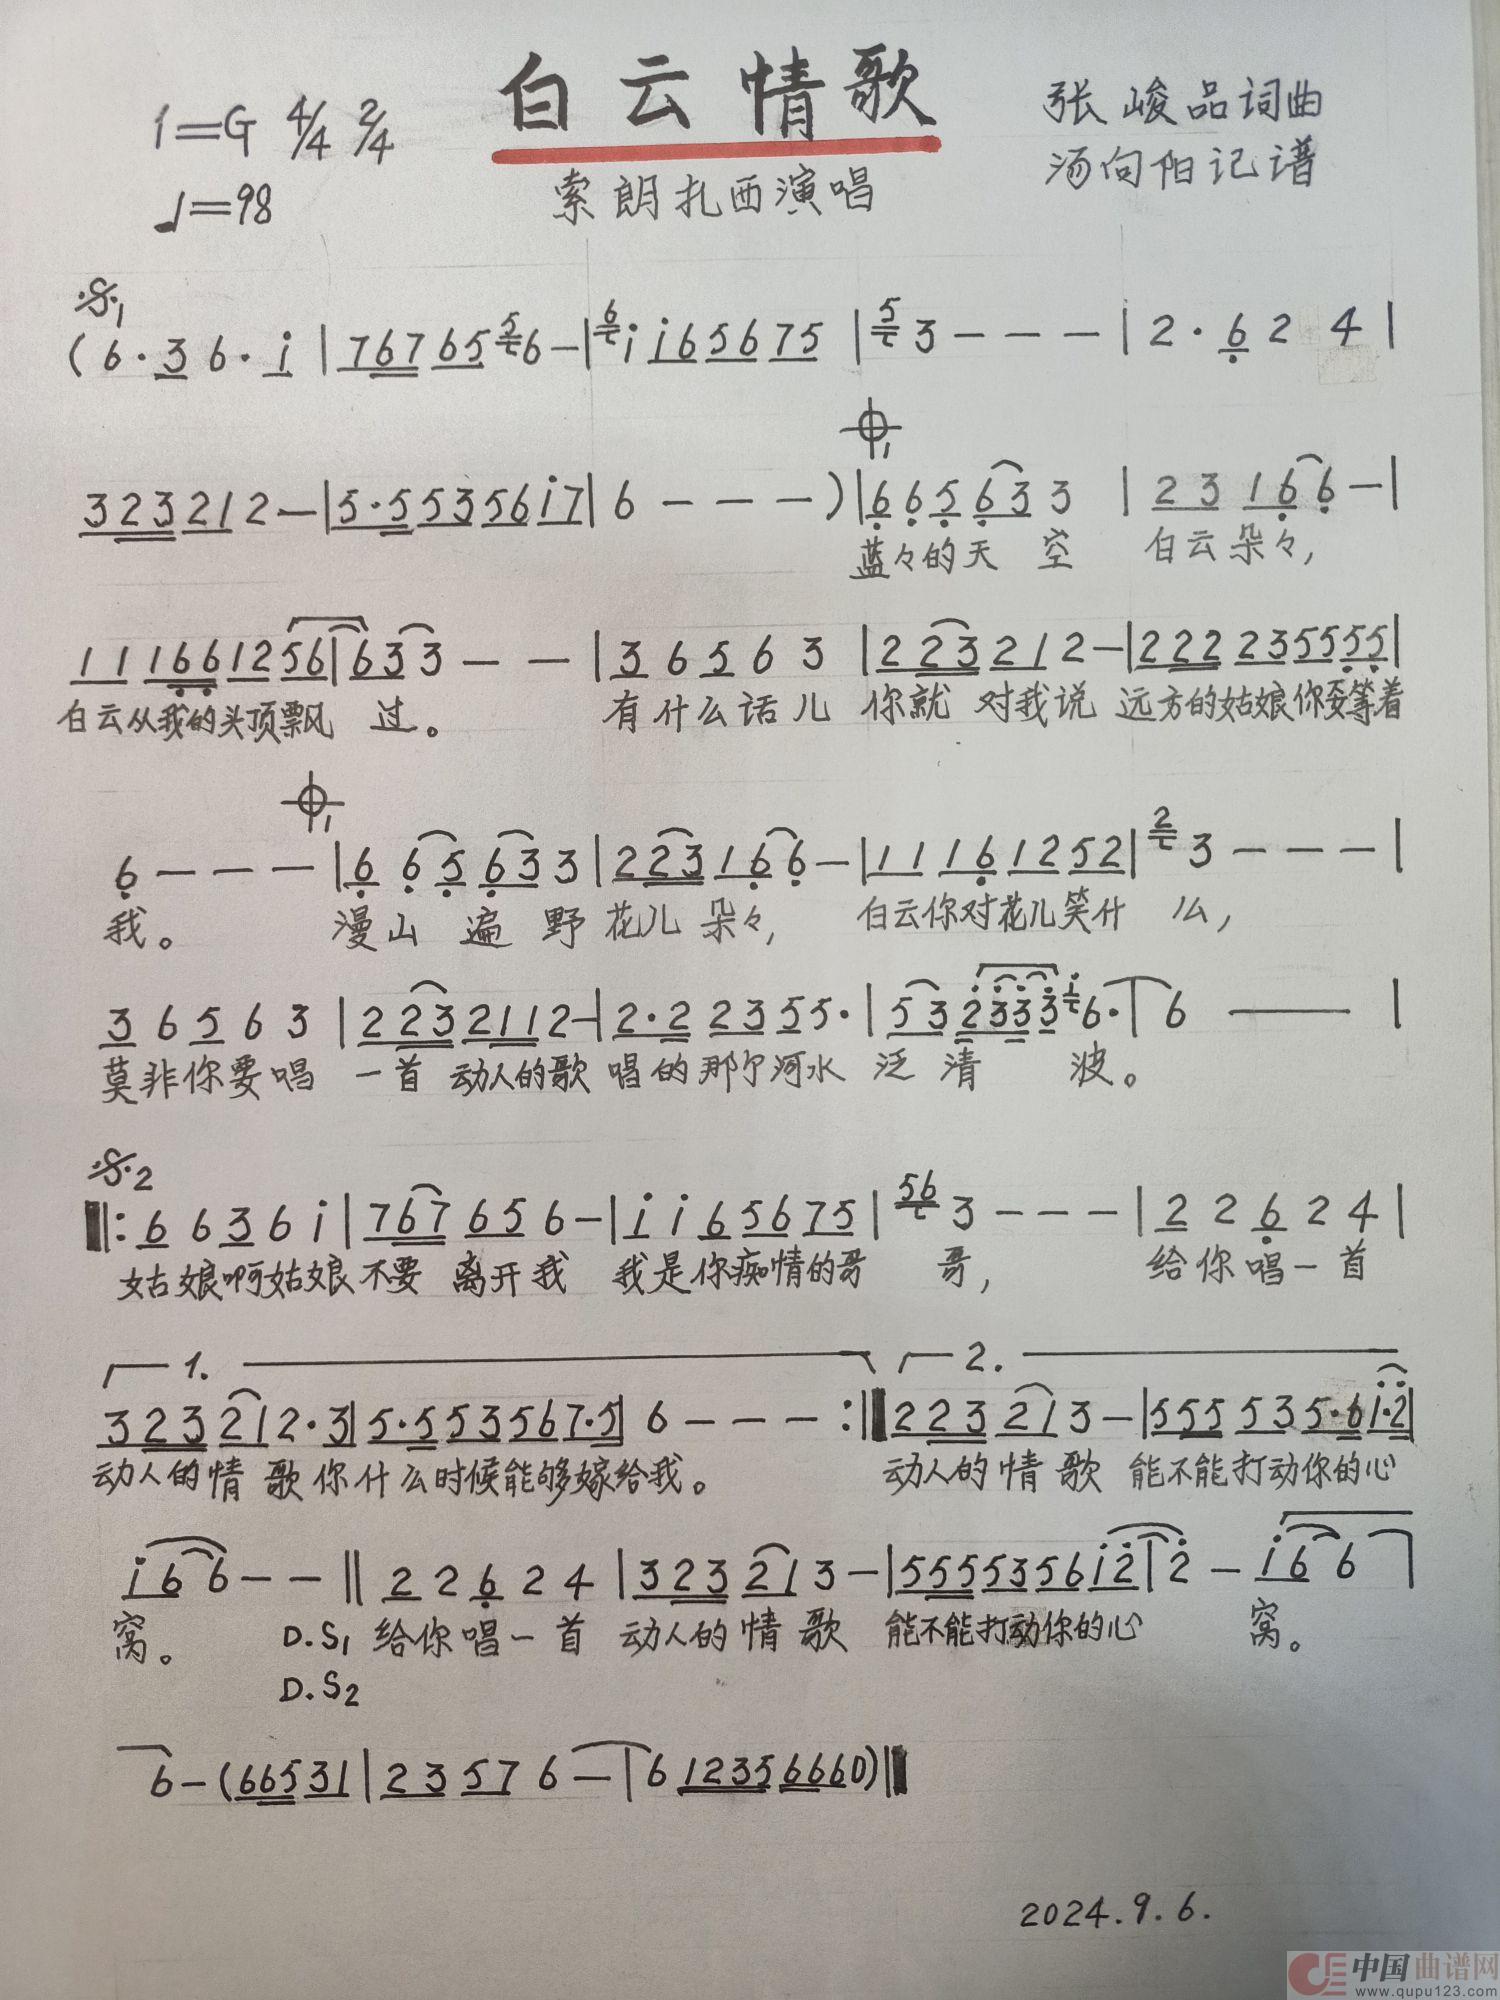 白云情歌
1=G 4/4 2/4
♩=98
张峻品词曲
汤向阳记谱
索朗扎西演唱
𝄋1
(6·3 6·i | 76765 5 6 – | 6 i i65675 | 5 3 – – – | 2·6 2 4 |
323212 – | 5·5535617 | 6 – – – ) | 665633 | 23166 – |
蓝々的天空 白云朵々,
111661256 | 633 – – | 36563 | 223212 – | 22223555 55 |
白云从我的头顶飘过。 有什么话儿 你就对我说 远方的姑娘你要等着
6 – – – | 665633 | 223166 – | 11161252 | 2 3 – – – |
我。 漫山遍野花儿朵々, 白云你对花儿笑什么,
36563 | 2232112 – | 2·22355· | 532333 i 6· | 6 —— |
莫非你要唱 一首动人的歌 唱的那尔河水泛清波。
𝄋2
‖: 6636i | 767656 – | i i65675 | 56 3 – – – | 22624 |
姑娘啊姑娘不要离开我 我是你痴情的哥哥, 给你唱一首
1. 2.
323212·3 | 5·553567·5 | 6 – – – :‖ 223213 – | 555535·6i·2 |
动人的情歌你什么时候能够嫁给我。 动人的情歌 能不能打动你的心
i66 – – ‖ 22624 | 323213 – | 55553556i2 | 2 – i66
窝。 D.S1 给你唱一首 动人的情歌 能不能打动你的心窝。
D.S2
6 – (66531 | 23576 – | 612356660) ‖
2024.9.6.
中国曲谱网
www.qupu123.com